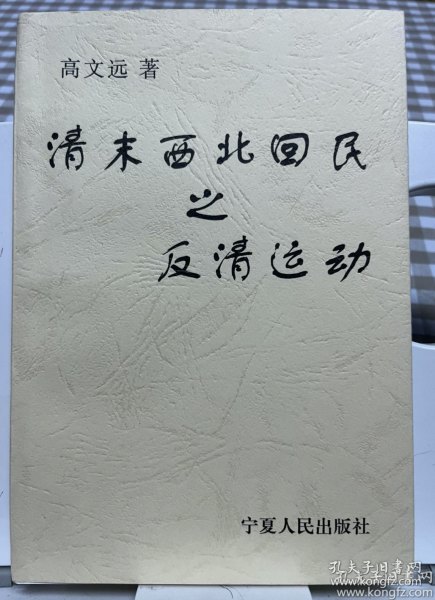 高文远 著
清末西北回民
之
反清运动
宁夏人民出版社
孔夫子旧书网
www.kongfz.com